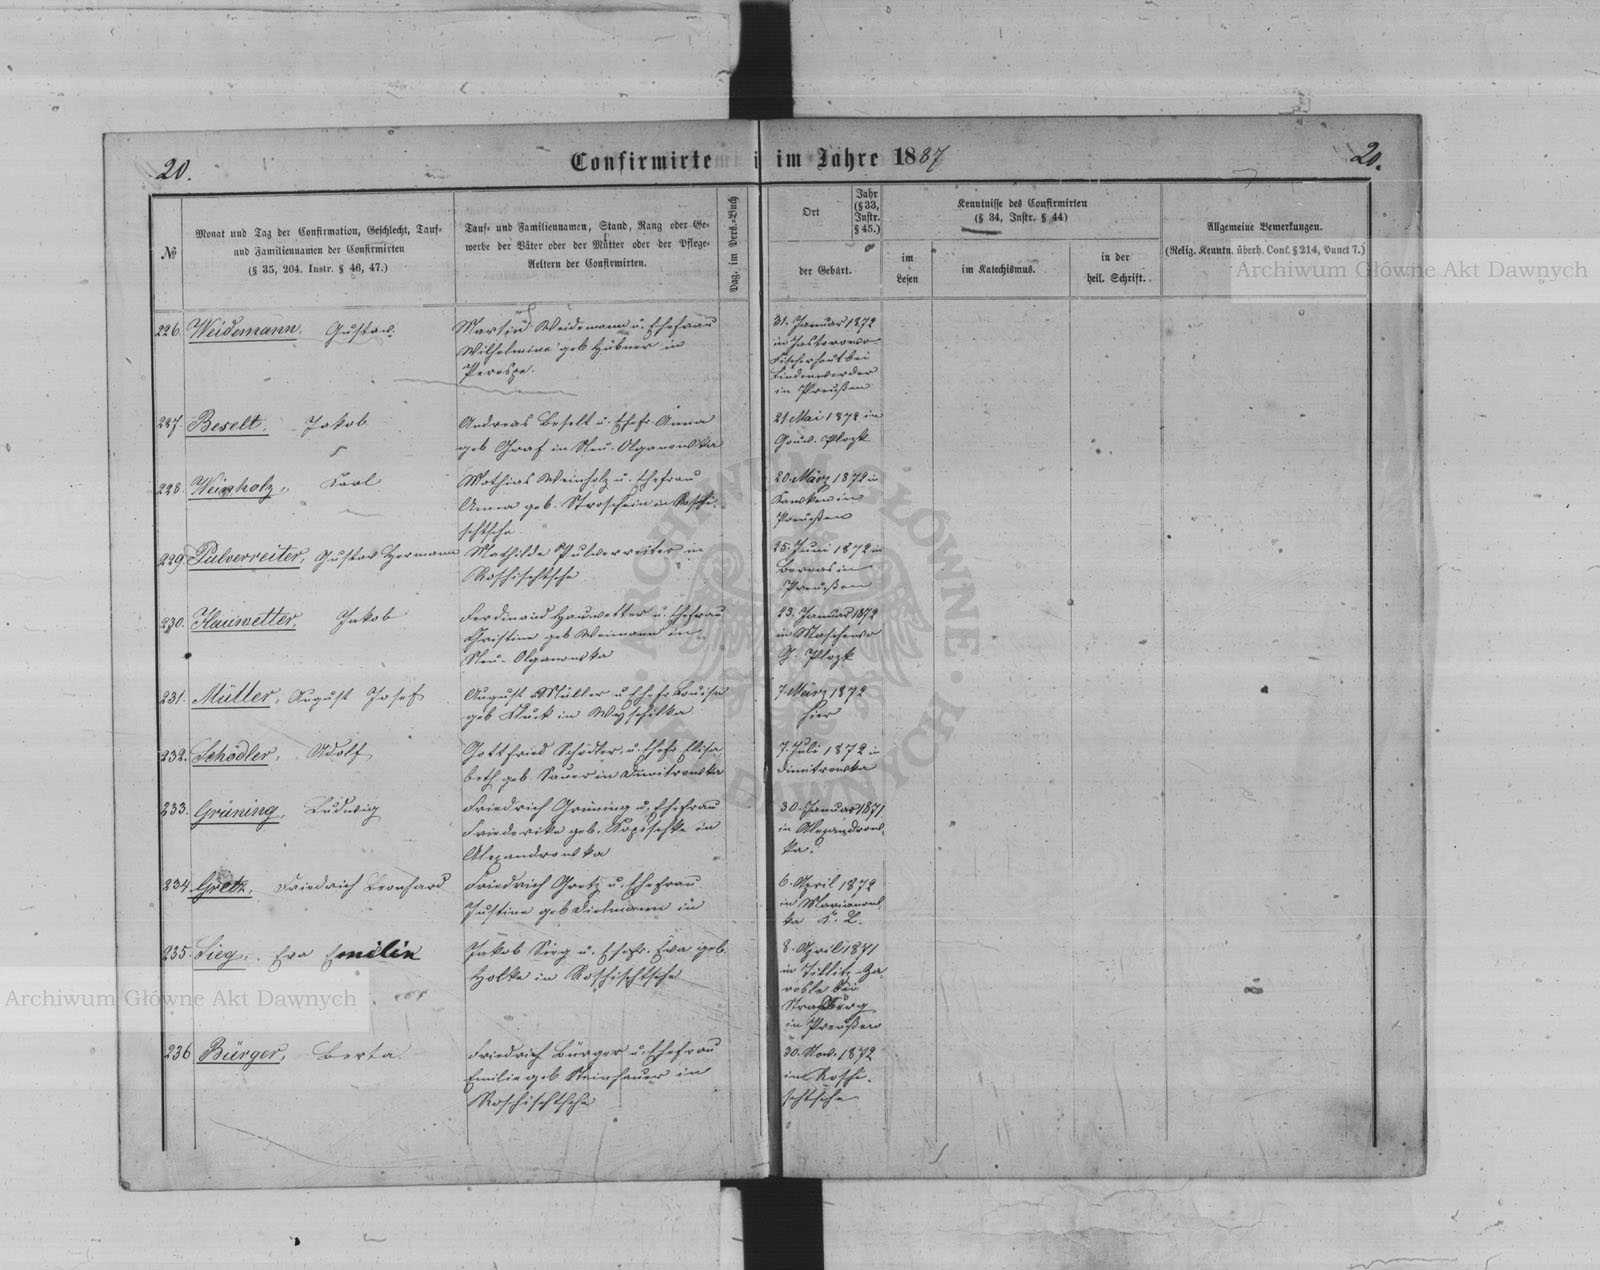 20.
Confirmirte im Jahre 1887
20.
№
Monat und Tag der Confirmation, Geschlecht, Tauf-
und Familiennamen der Confirmirten
(§ 35, 204. Instr. § 46, 47.)
Tauf- und Familiennamen, Stand, Rang oder Ge-
werbe der Väter oder der Mütter oder der Pflege-
Aeltern der Confirmirten.
Pag. im Pers.-Buch
Ort
Jahr
(§ 33,
Instr.
§ 45.)
der Geburt.
Kenntnisse des Confirmirten
(§ 34, Instr. § 44)
im
Lesen
im Katechismus.
in der
heil. Schrift.
Allgemeine Bemerkungen.
(Relig. Kenntn. überh. Conf. § 214, Punct 7.)
226. Weidemann Gustav.
Martin Weidemann u. Ehefrau
Wilhelmine geb Hübner in
Perespa.
31. Januar 1872
in Jastorowo
bei
Lindenwerder
in Preußen
227. Beselt, Jakob
Andreas Beselt u. Ehefr. Anna
geb Graf in Neu-Olganowka
21 Mai 1872 in
Gouv. Plozk
228. Weinholz, Karl
Mathias Weinholz u. Ehefrau
Anna geb. Stroschein in Roschi-
schtsche
20. März 1872 in
in
Preußen
229. Pulverreiter, Gustav Hermann
Mathilde Pulverreiter in
Roschischtsche
25. Juni 1872 in
in
Preußen
230. Hauwetter, Jakob
Ferdinand Hauwetter u. Ehefrau
Christine geb Weimann in
Neu-Olganowka
23. Januar 1872
in Maschewo
G. Plozk
231. Müller, August Josef
August Müller u. Ehefr. Louise
geb Kluck in
7. März 1872
hier
232. Schödler, Adolf
Gottfried Schödler, u. Ehefr Elisa-
beth geb. Sauer in Dmitrowka
7. Juli 1872 in
Dmitrowka
233. Grüning, Ludwig
Friedrich Grüning u. Ehefrau
Friederike geb. Kopischke in
Alexandrowka
30. Januar 1871
in Alexandrow-
ka.
234. Gretz, Friedrich Leonhard
Friedrich Gretz u. Ehefrau
Justine geb Dielmann in
6. April 1872
in Marianow-
ka K. L.
235. Sieg, Eva Emilie
Jakob Sieg u. Ehefr. Eva geb.
Holke in Roschischtsche
8. April 1871
in Tillitz-Za-
rosle bei
Strasburg
in Preußen
236 Bürger, Berta
Friedrich Bürger u. Ehefrau
Emilie geb Steinhauer in
Roschischtsche
30. Nov. 1872
in Roschi-
schtsche
Archiwum Główne Akt Dawnych
Archiwum Główne Akt Dawnych
ARCHIWUM GŁÓWNE AKT DAWNYCH